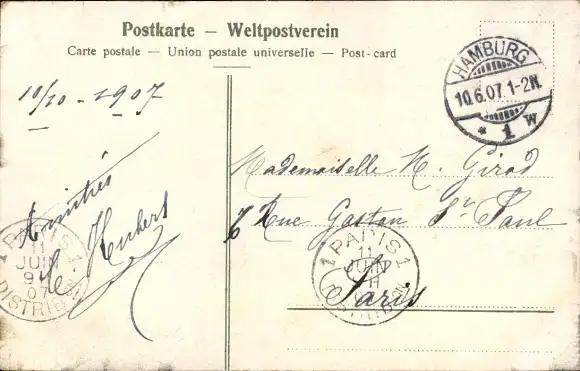 Postkarte – Weltpostverein
Carte postale — Union postale universelle — Post-card
HAMBURG
10.6.07. 1-2N.
* 1 W
10/10 - 1907
Mademoiselle H. Girod
Rue Gaston St. Paul
Paris
Amitiés
PARIS 1
11
JUIN
DISTRIBON
PARIS 1
JUIN
9
07
DISTRIBON